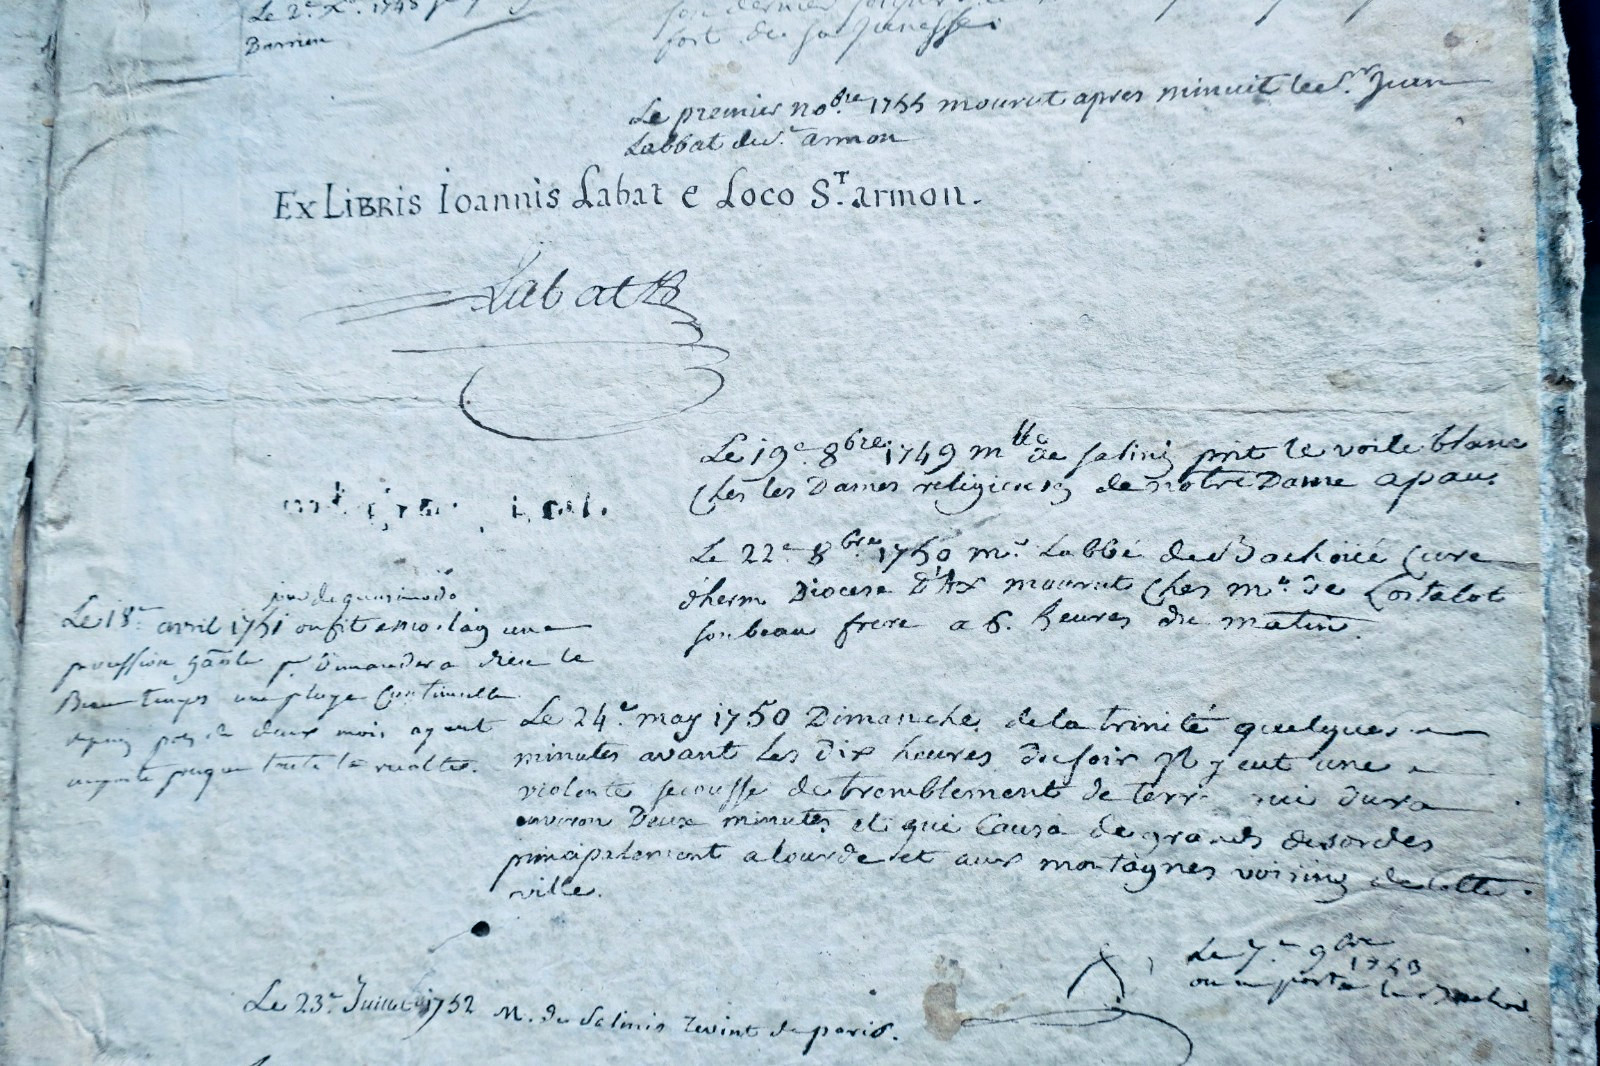 Le 2e Xre 1745
Barrieu
son dernier
fort de sa jeunesse.
Le premier nobre 1755 mourut apres minuit le Sr. Jean
Labbat de St. armon
Ex Libris Ioannis Labat e Loco St. armon.
Labat
Le 19e 8bre 1749 mlle de Salinis prit le voile blanc
Ches les Dames religieuses de notre Dame a pau.
Le 22e 8bre 1750 mr. Labbé de Bachoüé Cure
d'herm Diocese D'Ax mourut Ches mr. de Costalot
son beau frere a 6. heures du matin.
jour de quasimodo
Le 18e avril 1751 on fit a morlas une
procession ganlle pr. Demander a dieu le
Beau temps une pluye Continuelle
depuis pres de deux mois ayant
presque toute la recolte.
Le 24e may 1750 Dimanche de la trinité quelques
minutes avant les Dix heures du soir Il y eut une
violente secousse de tremblement de terre qui dura
environ Deux minutes et qui Causa de grands desordes
principalement a lourde et aux montagnes voisines de cette
ville.
Le 7e 9bre
1753
on a porté
Le 23e Juillet 1752 M. de Salinis revint de paris.